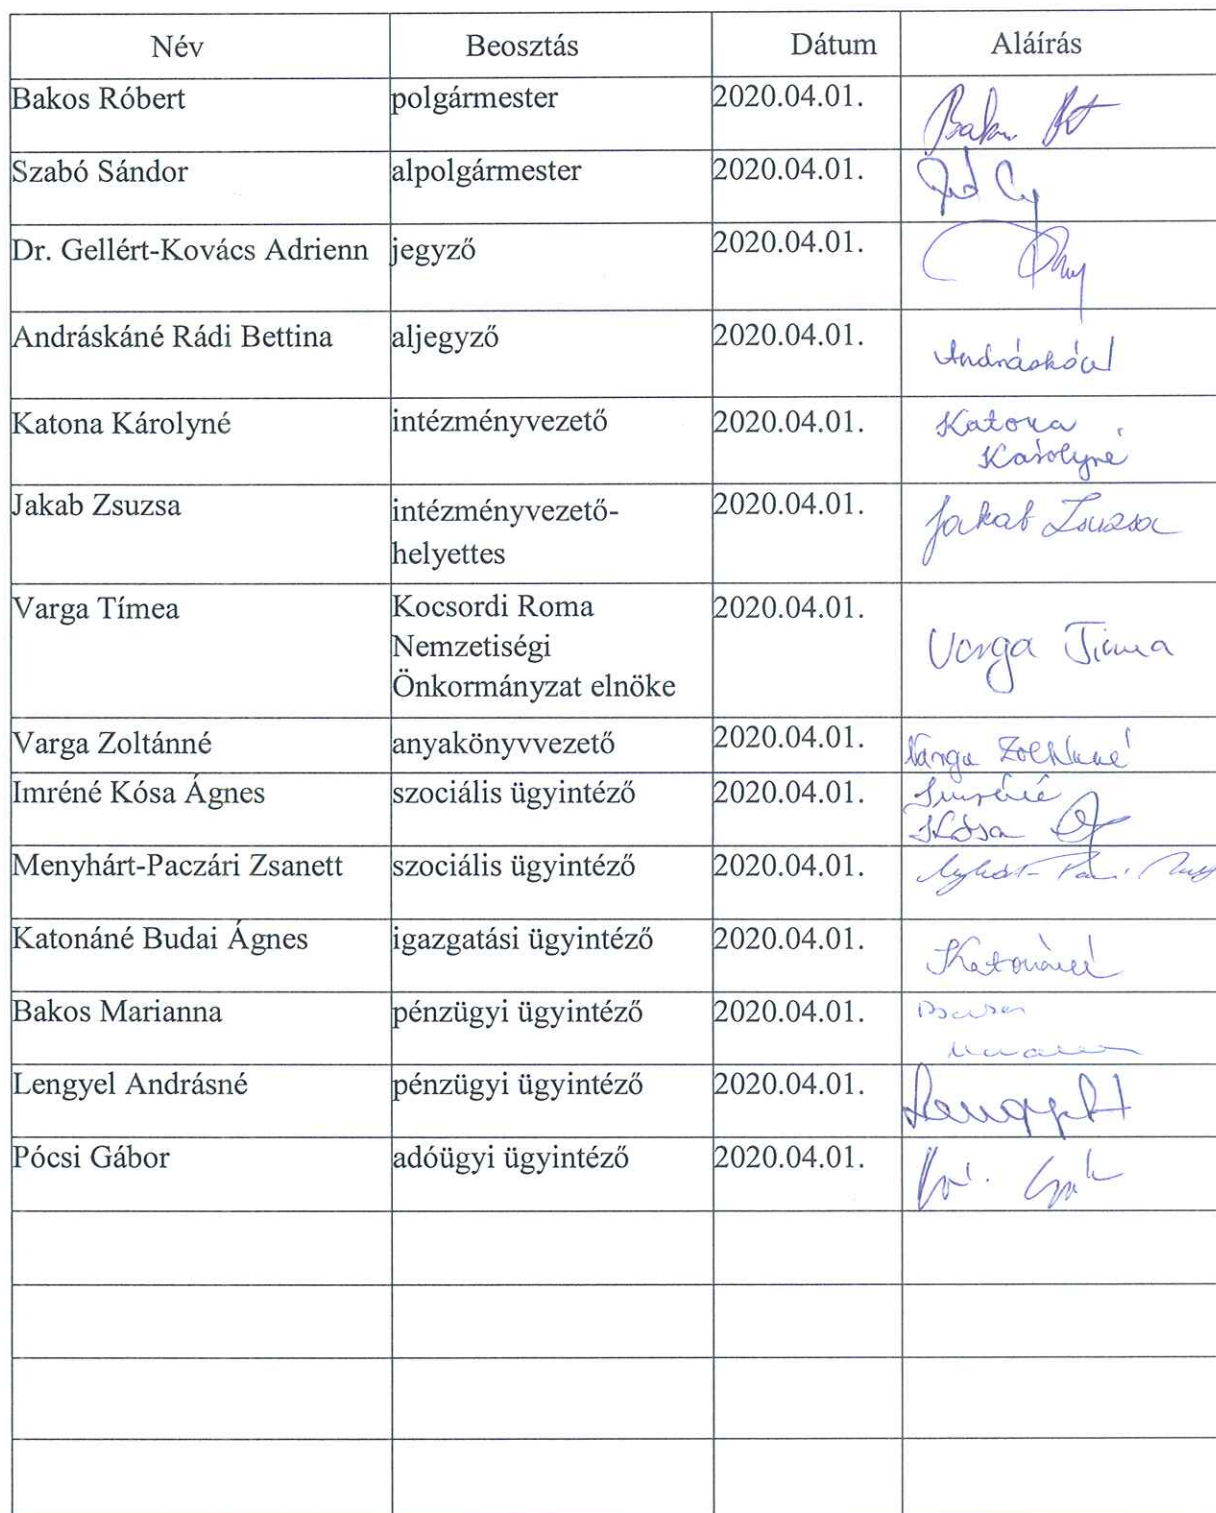 Név Beosztás Dátum Aláírás
Bakos Róbert polgármester 2020.04.01.
Szabó Sándor alpolgármester 2020.04.01.
Dr. Gellért-Kovács Adrienn jegyző 2020.04.01.
Andráskáné Rádi Bettina aljegyző 2020.04.01.
Katona Károlyné intézményvezető 2020.04.01. Katona
Károlyné
Jakab Zsuzsa intézményvezető- 2020.04.01. Jakab Zsuzsa
helyettes
Varga Tímea Kocsordi Roma 2020.04.01.
Nemzetiségi Varga Tímea
Önkormányzat elnöke
Varga Zoltánné anyakönyvvezető 2020.04.01. Varga Zoltánné
Imréné Kósa Ágnes szociális ügyintéző 2020.04.01. Imréné
Kósa
Menyhárt-Paczári Zsanett szociális ügyintéző 2020.04.01.
Katonáné Budai Ágnes igazgatási ügyintéző 2020.04.01. Katonáné
Bakos Marianna pénzügyi ügyintéző 2020.04.01.
Lengyel Andrásné pénzügyi ügyintéző 2020.04.01.
Pócsi Gábor adóügyi ügyintéző 2020.04.01.